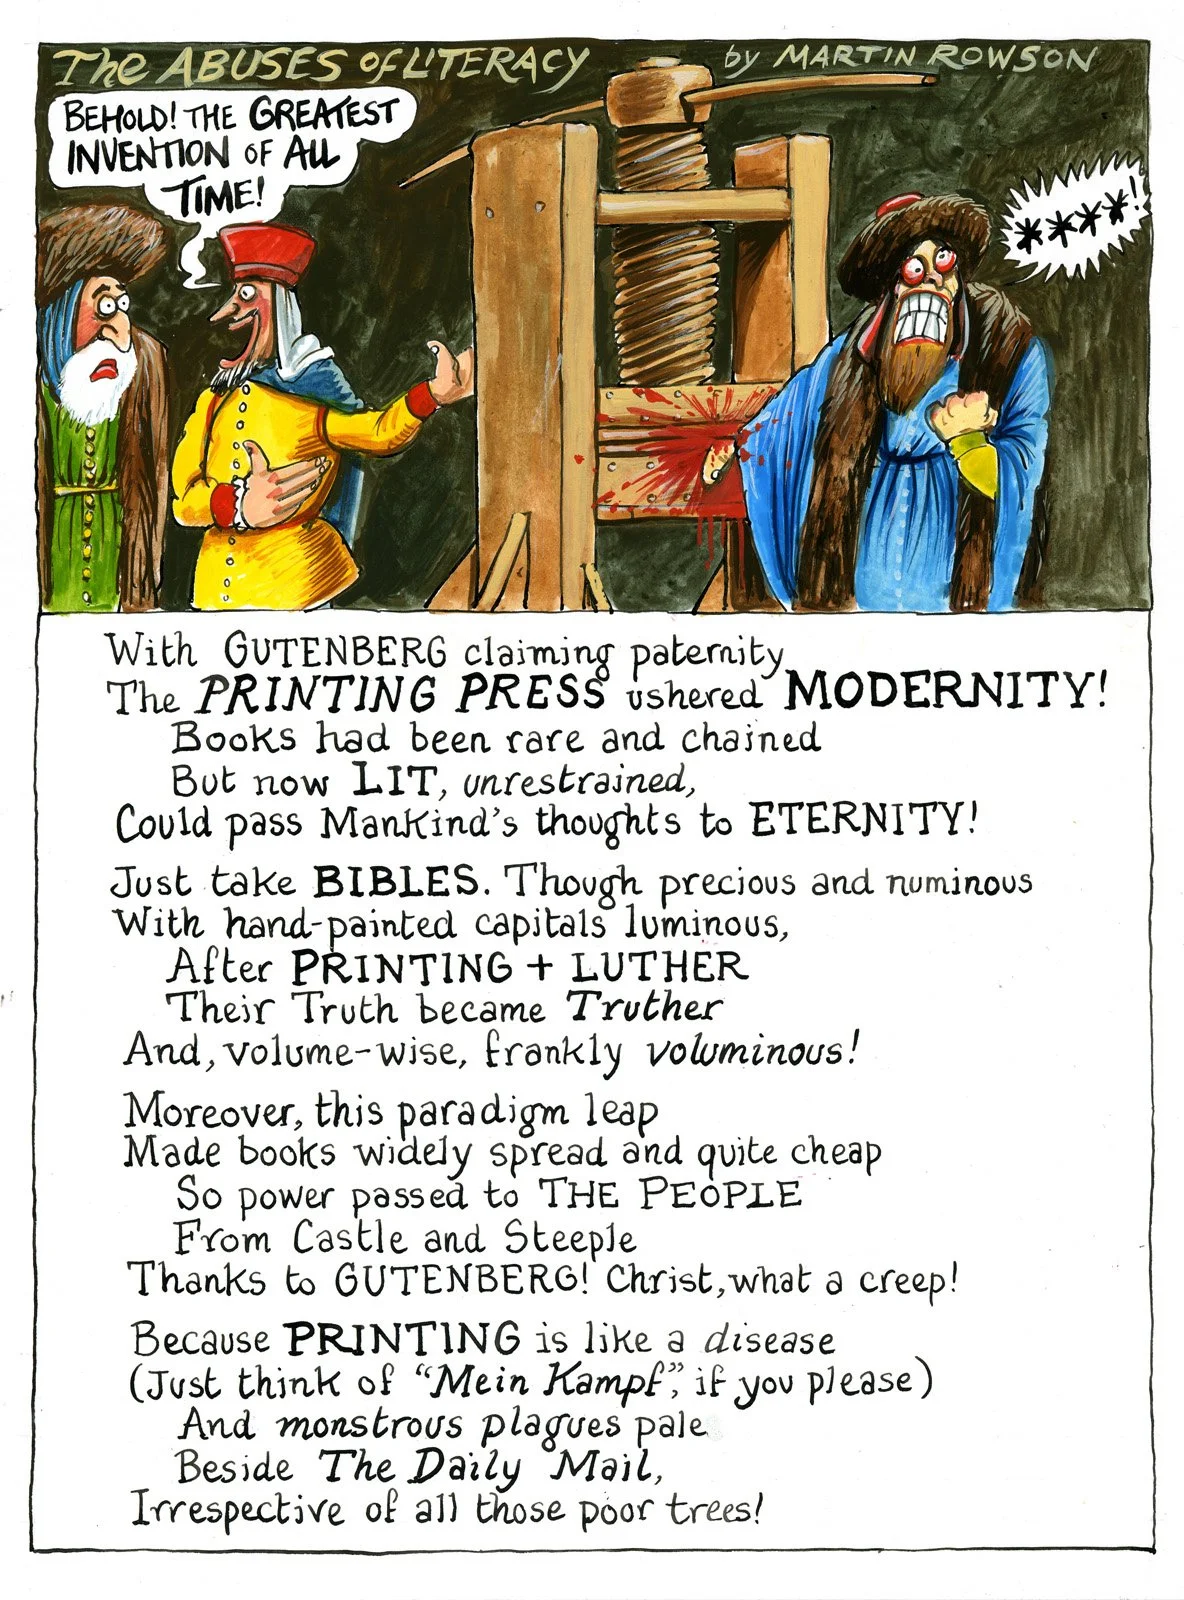 The ABUSES OF LITERACY
by MARTIN ROWSON
BEHOLD! THE GREATEST
INVENTION OF ALL
TIME!
****!
With GUTENBERG claiming paternity
The PRINTING PRESS ushered MODERNITY!
Books had been rare and chained
But now LIT, unrestrained,
Could pass Mankind's thoughts to ETERNITY!
Just take BIBLES. Though precious and numinous
With hand-painted capitals luminous,
After PRINTING + LUTHER
Their Truth became Truther
And, volume-wise, frankly voluminous!
Moreover, this paradigm leap
Made books widely spread and quite cheap
So power passed to THE PEOPLE
From Castle and Steeple
Thanks to GUTENBERG! Christ, what a creep!
Because PRINTING is like a disease
(Just think of "Mein Kampf", if you please)
And monstrous plagues pale
Beside The Daily Mail,
Irrespective of all those poor trees!